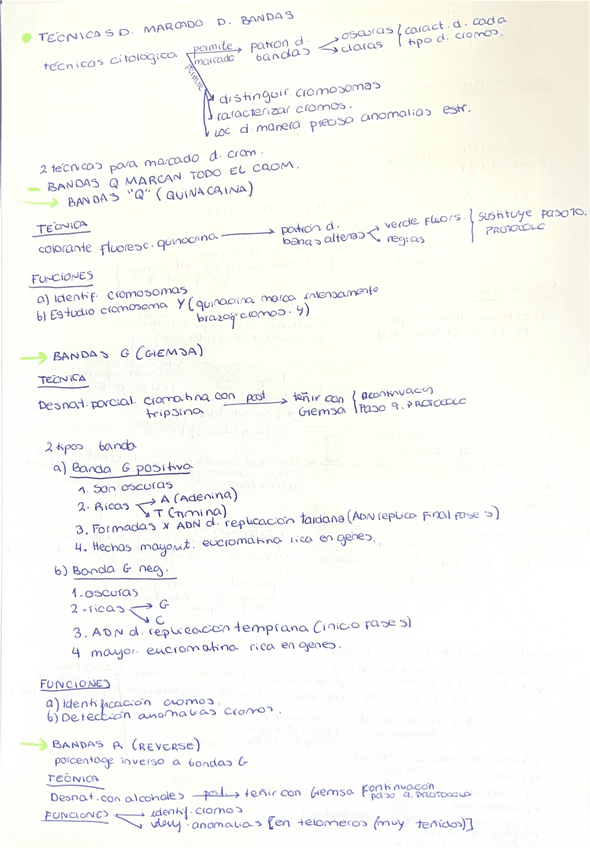 TECNICAS D. MARCADO D. BANDAS
técnicas citologica permite marcado patron d. bandas oscuras claras caract. d. cada tipo d. cromos.
permite
distinguir cromosomas
caracterizar cromos.
loc. d. manera precisa anomalias estr.
2 técnicas para marcado d. crom.
- BANDAS Q MARCAN TODO EL CROM.
→ BANDAS "Q" (QUINACRINA)
TECNICA
colorante fluoresc. quinacrina → patron d. bandas alteras verde fluors. negras sustituye PASO 10. PROTOCOLO
FUNCIONES
a) Identif. cromosomas
b) Estudio cromosoma Y (quinacrina marca intensamente
brazo q cromos. Y)
→ BANDAS G (GIEMSA)
TECNICA
Desnat. parcial. cromatina con tripsina post → teñir con Giemsa continuacion PASO 9. PROTOCOLO
2 tipos banda
a) Banda G positiva
1. Son oscuras
2. Ricas → A (Adenina)
→ T (Timina)
3. Formadas x ADN d. replicacion tardana (ADN replica final fase S)
4. Hechas mayorit. eucromatina rica en genes.
b) Banda G neg.
1. oscuras
2 - ricas → G
→ C
3. ADN d. replicacion temprana (inicio fase S)
4 mayor. eucromatina rica en genes.
FUNCIONES
a) Identificación cromos.
b) Detección anomalias cromos.
→ BANDAS R (REVERSE)
porcentage inverso a bandas G
TECNICA
Desnat. con alcoholes post → teñir con Giemsa continuación PASO 9. PROTOCOLO
FUNCIONES → identif. cromos
→ anomalias [en telomeros (muy teñidos)]